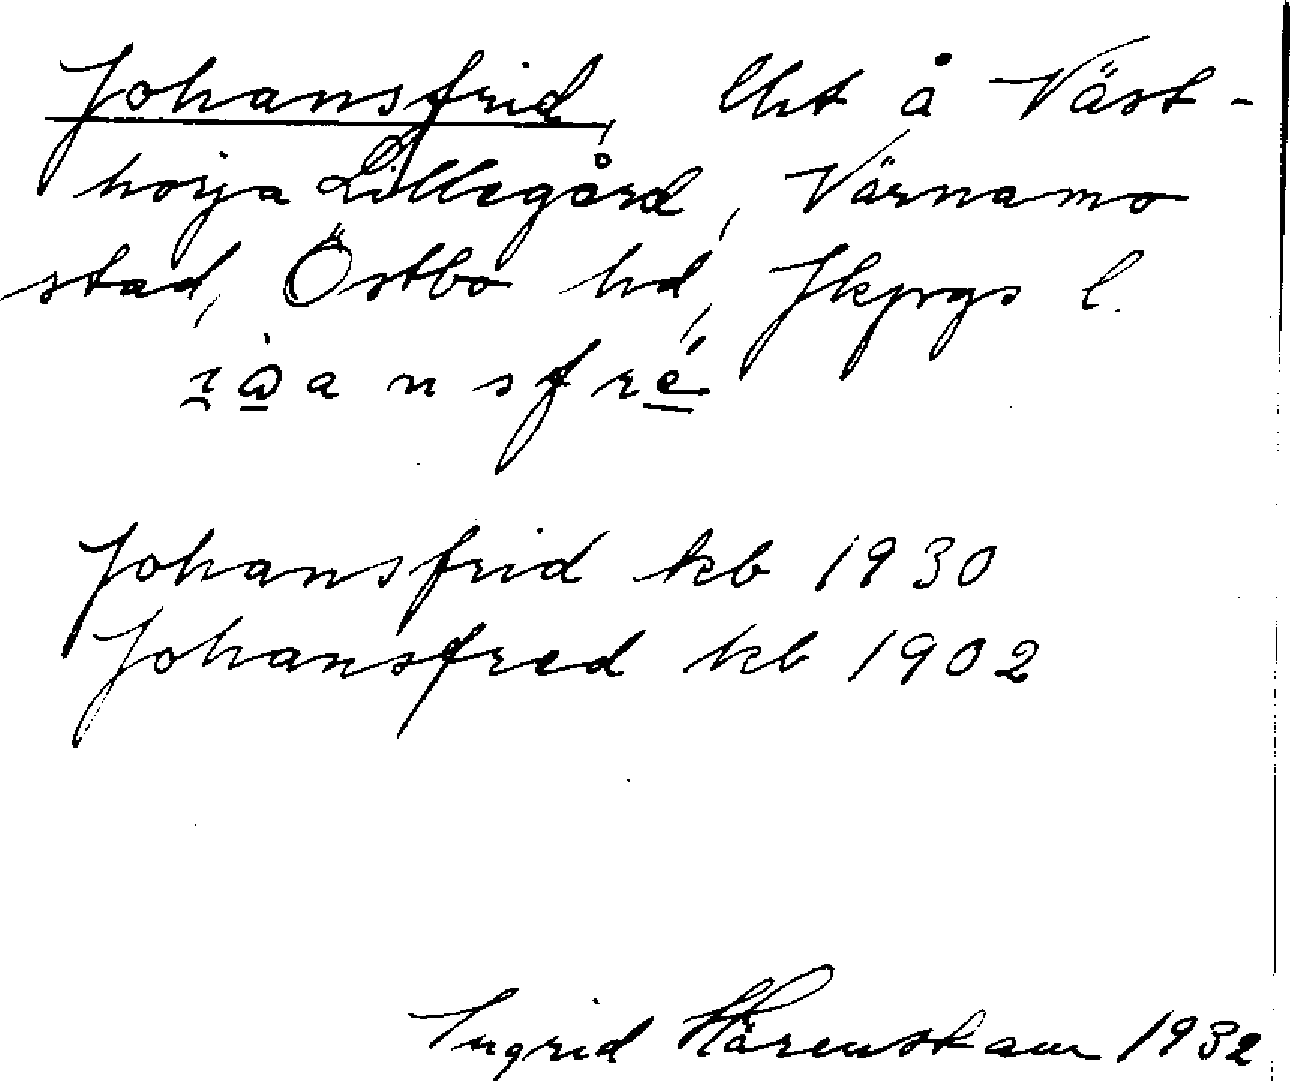 Johansfrid, lht å Väst-
horja Lillegård, Värnamo
stad, Östbo hd, Jkpgs l.
Johansfrid kb 1930
Johansfred kb 1902
Ingrid Härenstam 1932